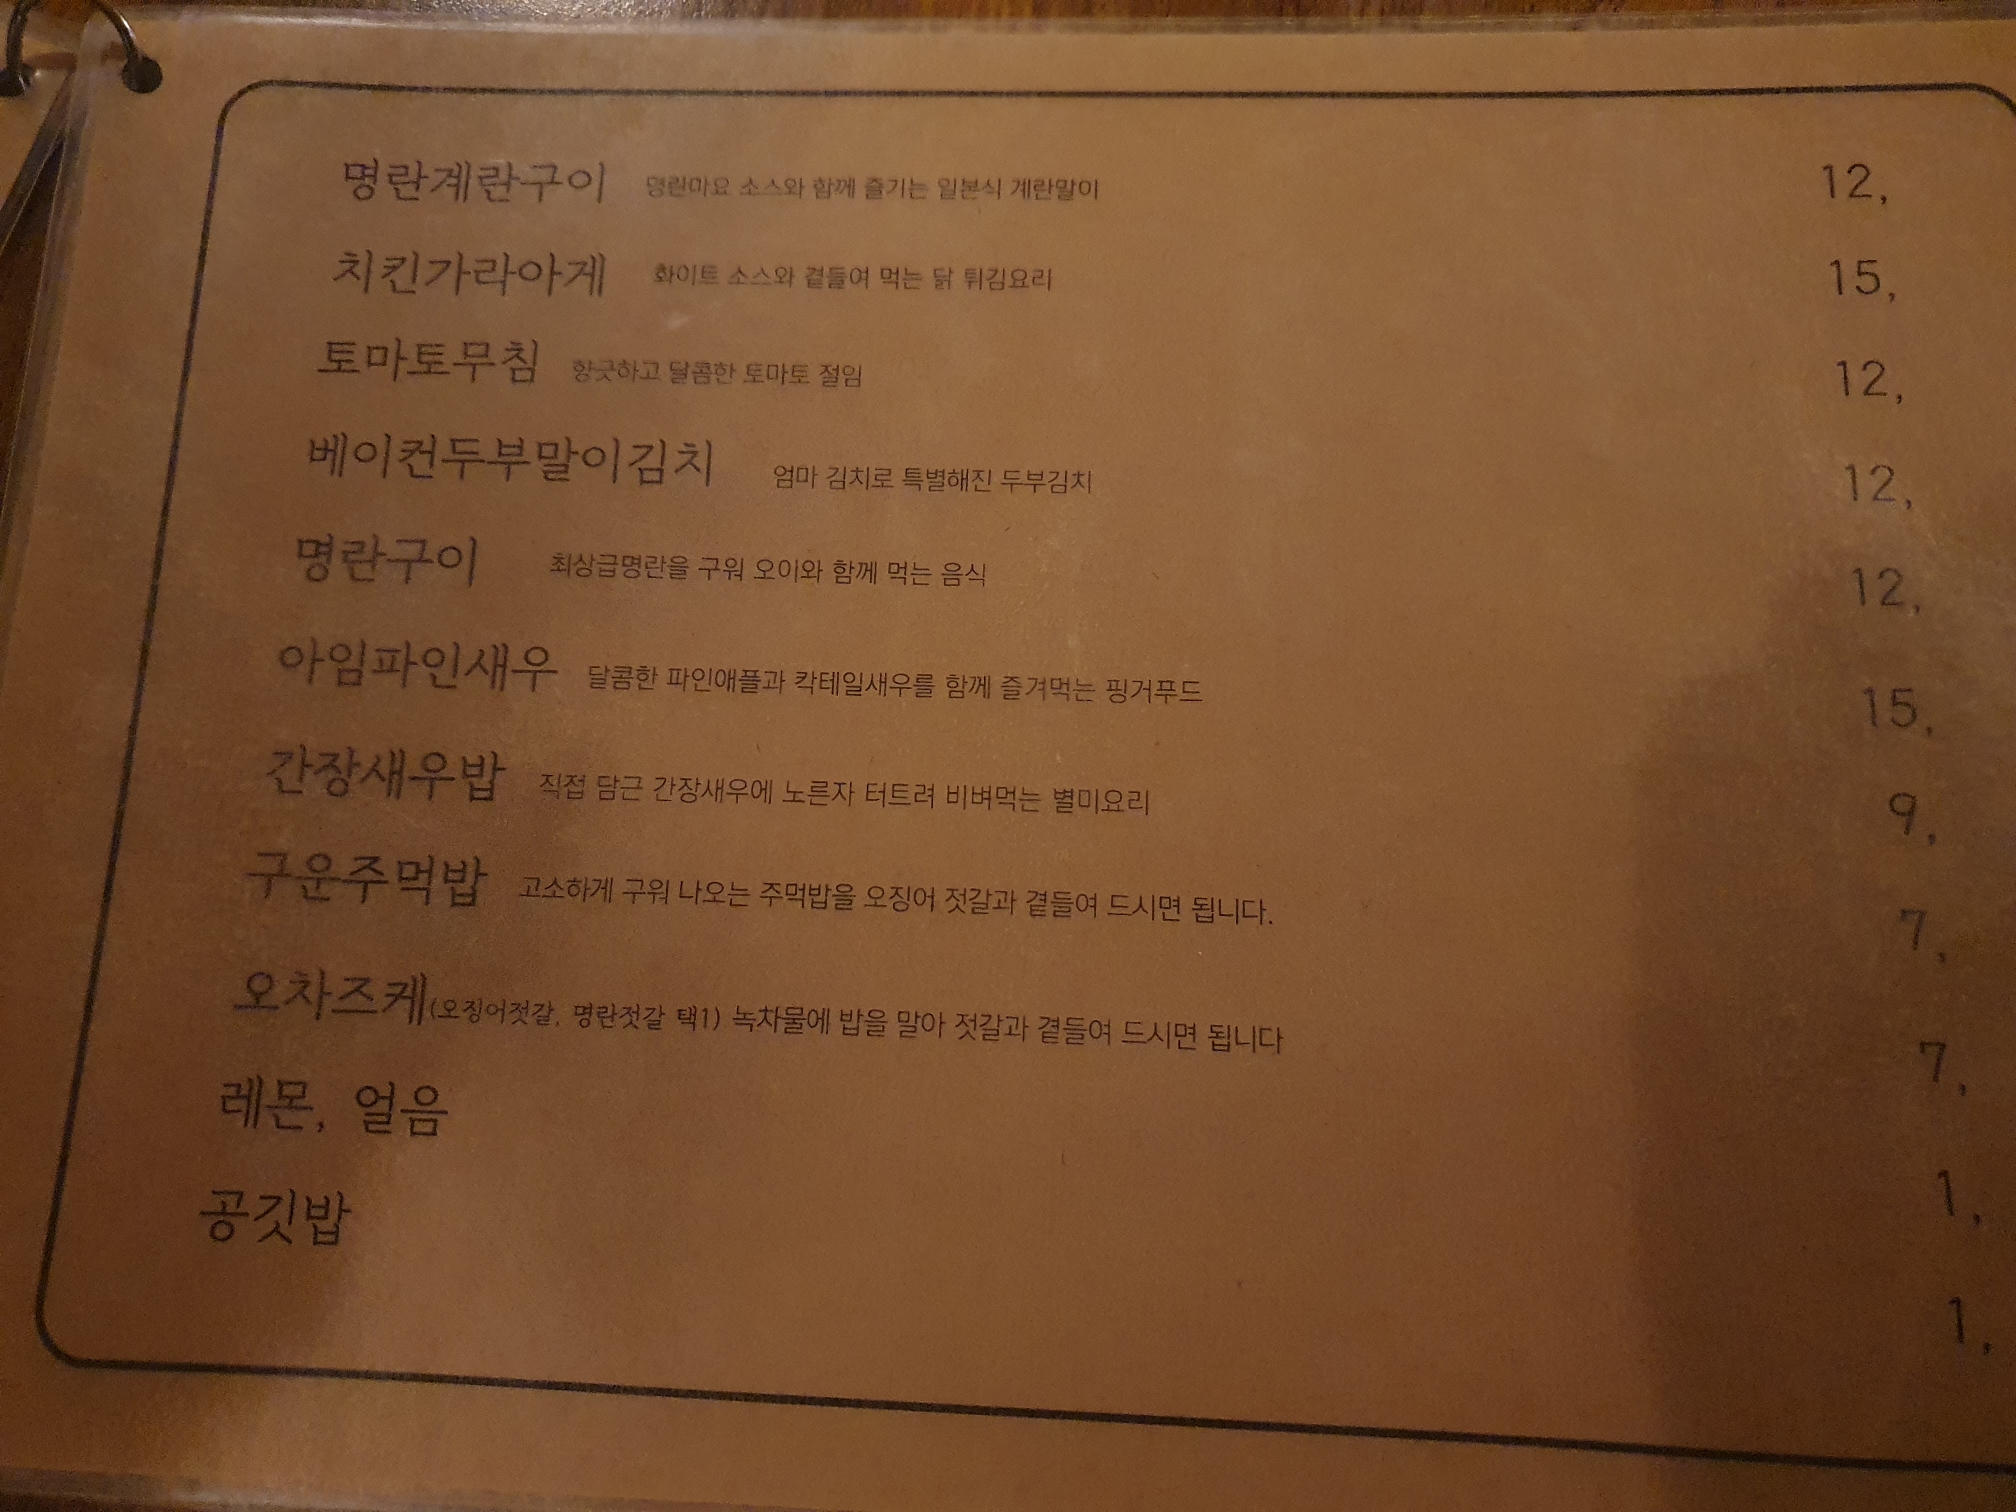 명란계란구이 명란마요 소스와 함께 즐기는 일본식 계란말이 12,
치킨가라아게 화이트 소스와 곁들여 먹는 닭 튀김요리 15,
토마토무침 향긋하고 달콤한 토마토 절임 12,
베이컨두부말이김치 엄마 김치로 특별해진 두부김치 12,
명란구이 최상급명란을 구워 오이와 함께 먹는 음식 12,
아임파인새우 달콤한 파인애플과 칵테일새우를 함께 즐겨먹는 핑거푸드 15,
간장새우밥 직접 담근 간장새우에 노른자 터트려 비벼먹는 별미요리 9,
구운주먹밥 고소하게 구워 나오는 주먹밥을 오징어 젓갈과 곁들여 드시면 됩니다. 7,
오차즈케(오징어젓갈, 명란젓갈 택1) 녹차물에 밥을 말아 젓갈과 곁들여 드시면 됩니다 7,
레몬, 얼음 1,
공깃밥 1,